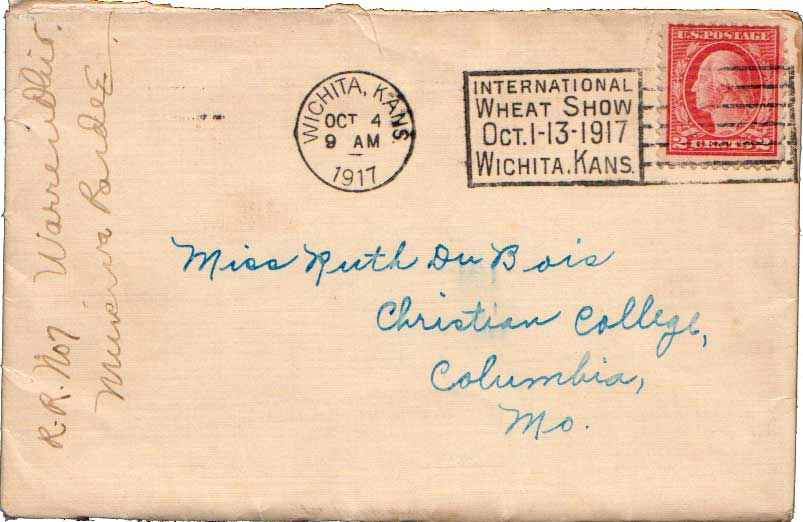 WICHITA, KANS.
OCT 4
9 AM
1917
INTERNATIONAL
WHEAT SHOW
OCT.1-13-1917
WICHITA.KANS.
U.S. POSTAGE
2 CENTS 2
Miss Ruth Du Bois
Christian College,
Columbia,
Mo.
R.R. No 7 Warren
Pardee